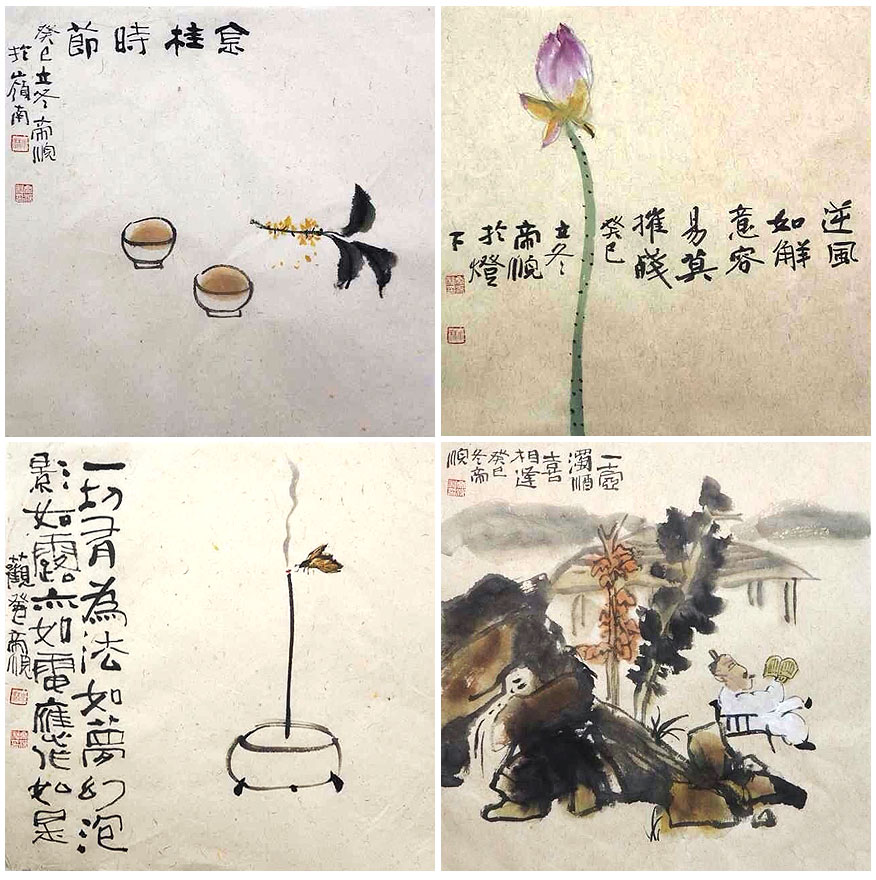 金桂時節
癸巳立冬帝順
於嶺南
逆風
如解
意容
易莫
摧殘
癸巳
立冬
帝順
於燈
下
一切有為法如夢幻泡
影如露亦如電應作如是
觀 癸巳帝順
一壺
濁酒
喜
相逢
癸巳
冬帝
順